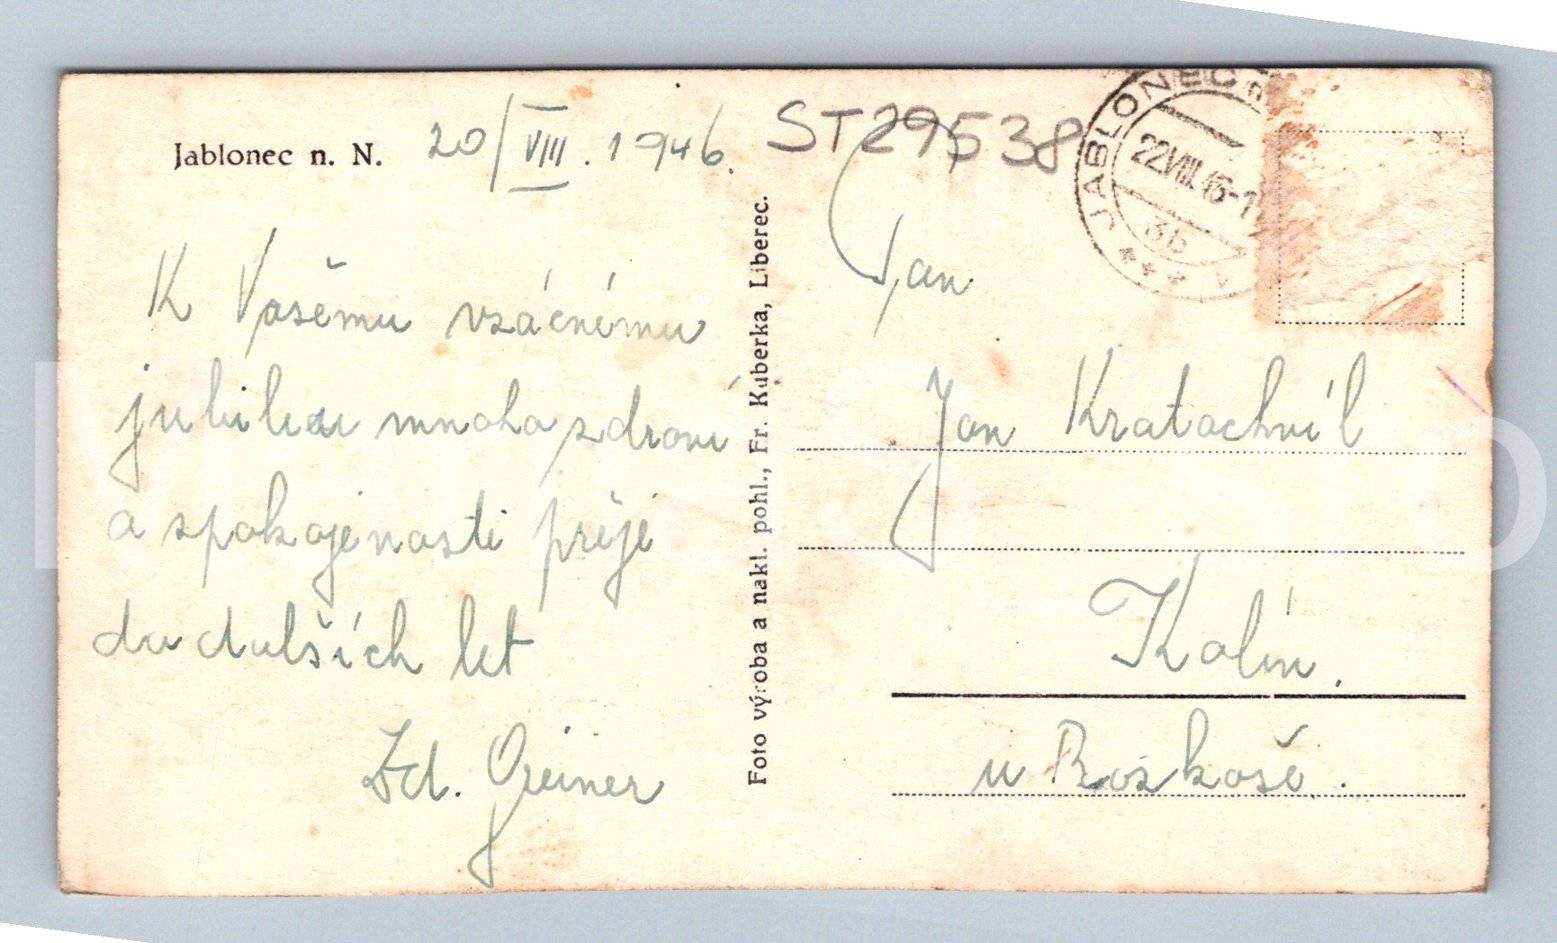 Jablonec n. N. 20/VIII. 1946.
K Vašemu vzácnému
jubileu mnoho zdraví
a spokojenosti přeje
do dalších let
Zd. Greiner
Foto výroba a nakl. pohl., Fr. Kuberka, Liberec.
ST29538
JABLONEC
22.VIII.46-1
3b
Pan
Jan Kratochvíl
Kolín.
u Rozkoše.